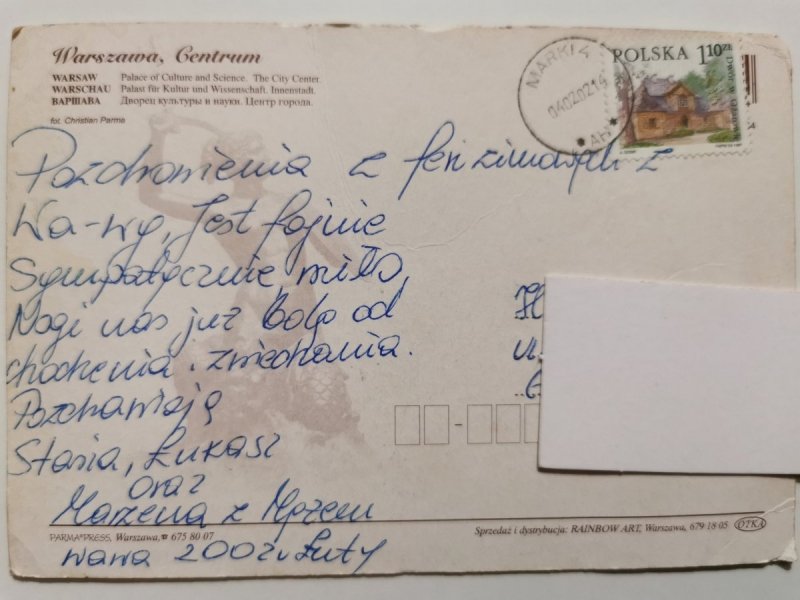 Warszawa, Centrum
WARSAW Palace of Culture and Science. The City Center.
WARSCHAU Palast für Kultur und Wissenschaft. Innenstadt.
ВАРШАВА Дворец культуры и науки. Центр города.
fot. Christian Parma
MARKI 4
040202 14
POLSKA 1,10 ZŁ
Pozdrowienia z ferii zimowych z
Wa-wy, Jest fajnie
Sympatycznie, miło,
Nogi nas już bolą od
chodzenia i zwiedzania.
Pozdrawiają
Stasia, Łukasz
oraz
Marzena z Mężem
wawa 2002r Luty
PARMA PRESS, Warszawa, ☎ 675 80 07
Sprzedaż i dystrybucja: RAINBOW ART, Warszawa, 679 18 05 OTKA